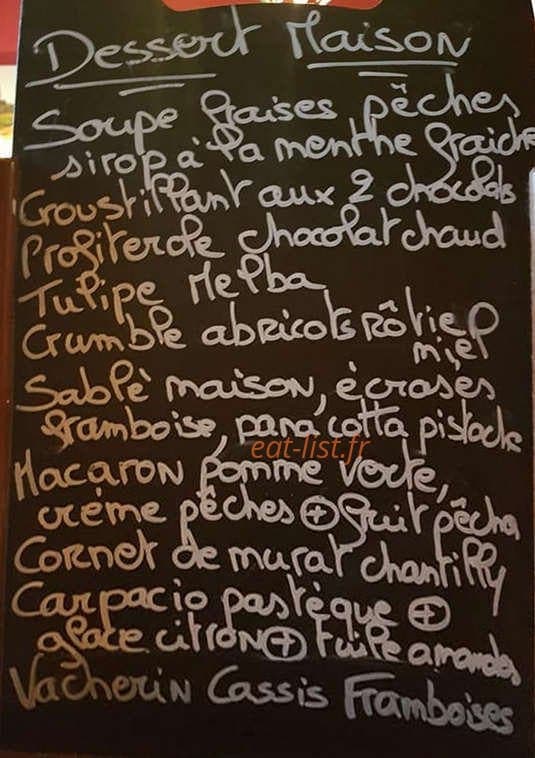 Dessert Maison
Soupe fraises pêches
sirop à la menthe fraiche
Croustillant aux 2 chocolats
Profiterole chocolat chaud
Tulipe Melba
Crumble abricots rôtie
miel
Sablè maison, écrasés
framboise, pana cotta pistache
eat-list.fr
Macaron pomme verte,
crème pêches + fruit pêcha
Cornet de murat chantilly
Carpacio pastèque +
glace citron + tuile amandes
Vacherin Cassis Framboises